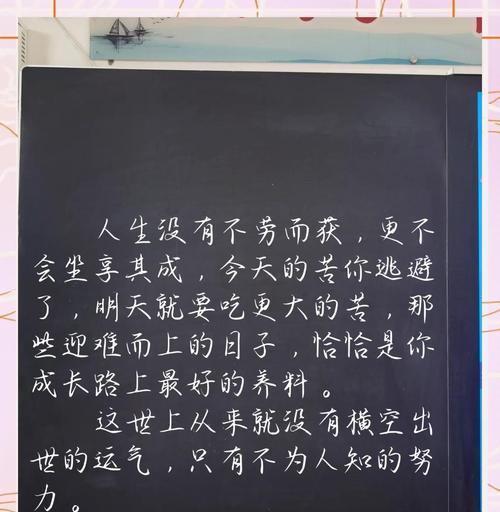 人生没有不劳而获，更不
会坐享其成，今天的苦你逃避
了，明天就要吃更大的苦，那
些迎难而上的日子，恰恰是你
成长路上最好的养料。
这世上从来就没有横空出
世的运气，只有不为人知的努
力。